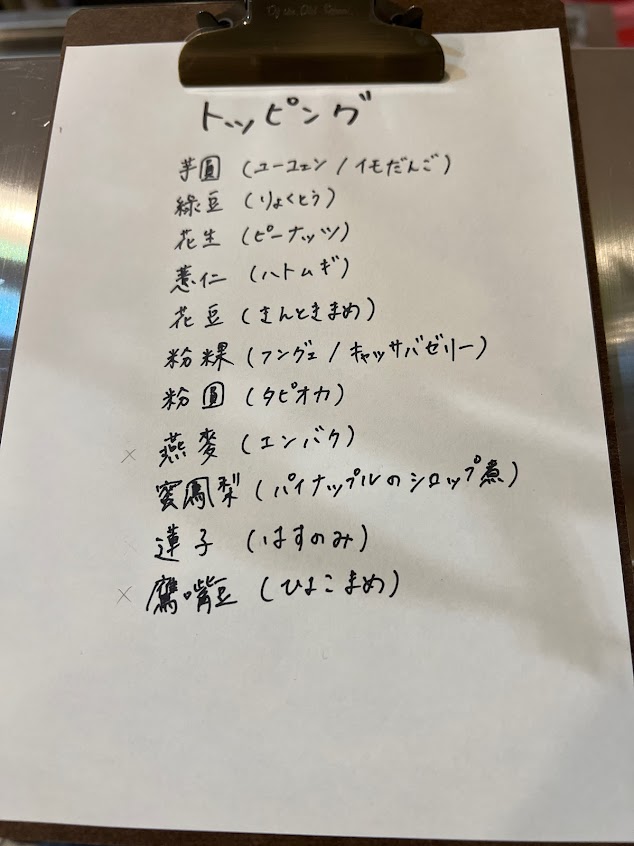 トッピング
芋圓 (ユーユェン / イモだんご)
綠豆 (りょくとう)
花生 (ピーナッツ)
薏仁 (ハトムギ)
花豆 (きんときまめ)
粉粿 (フングェ / キャッサバゼリー)
粉圓 (タピオカ)
× 燕麥 (エンバク)
蜜鳳梨 (パイナップルのシロップ煮)
蓮子 (はすのみ)
× 鷹嘴豆 (ひよこまめ)